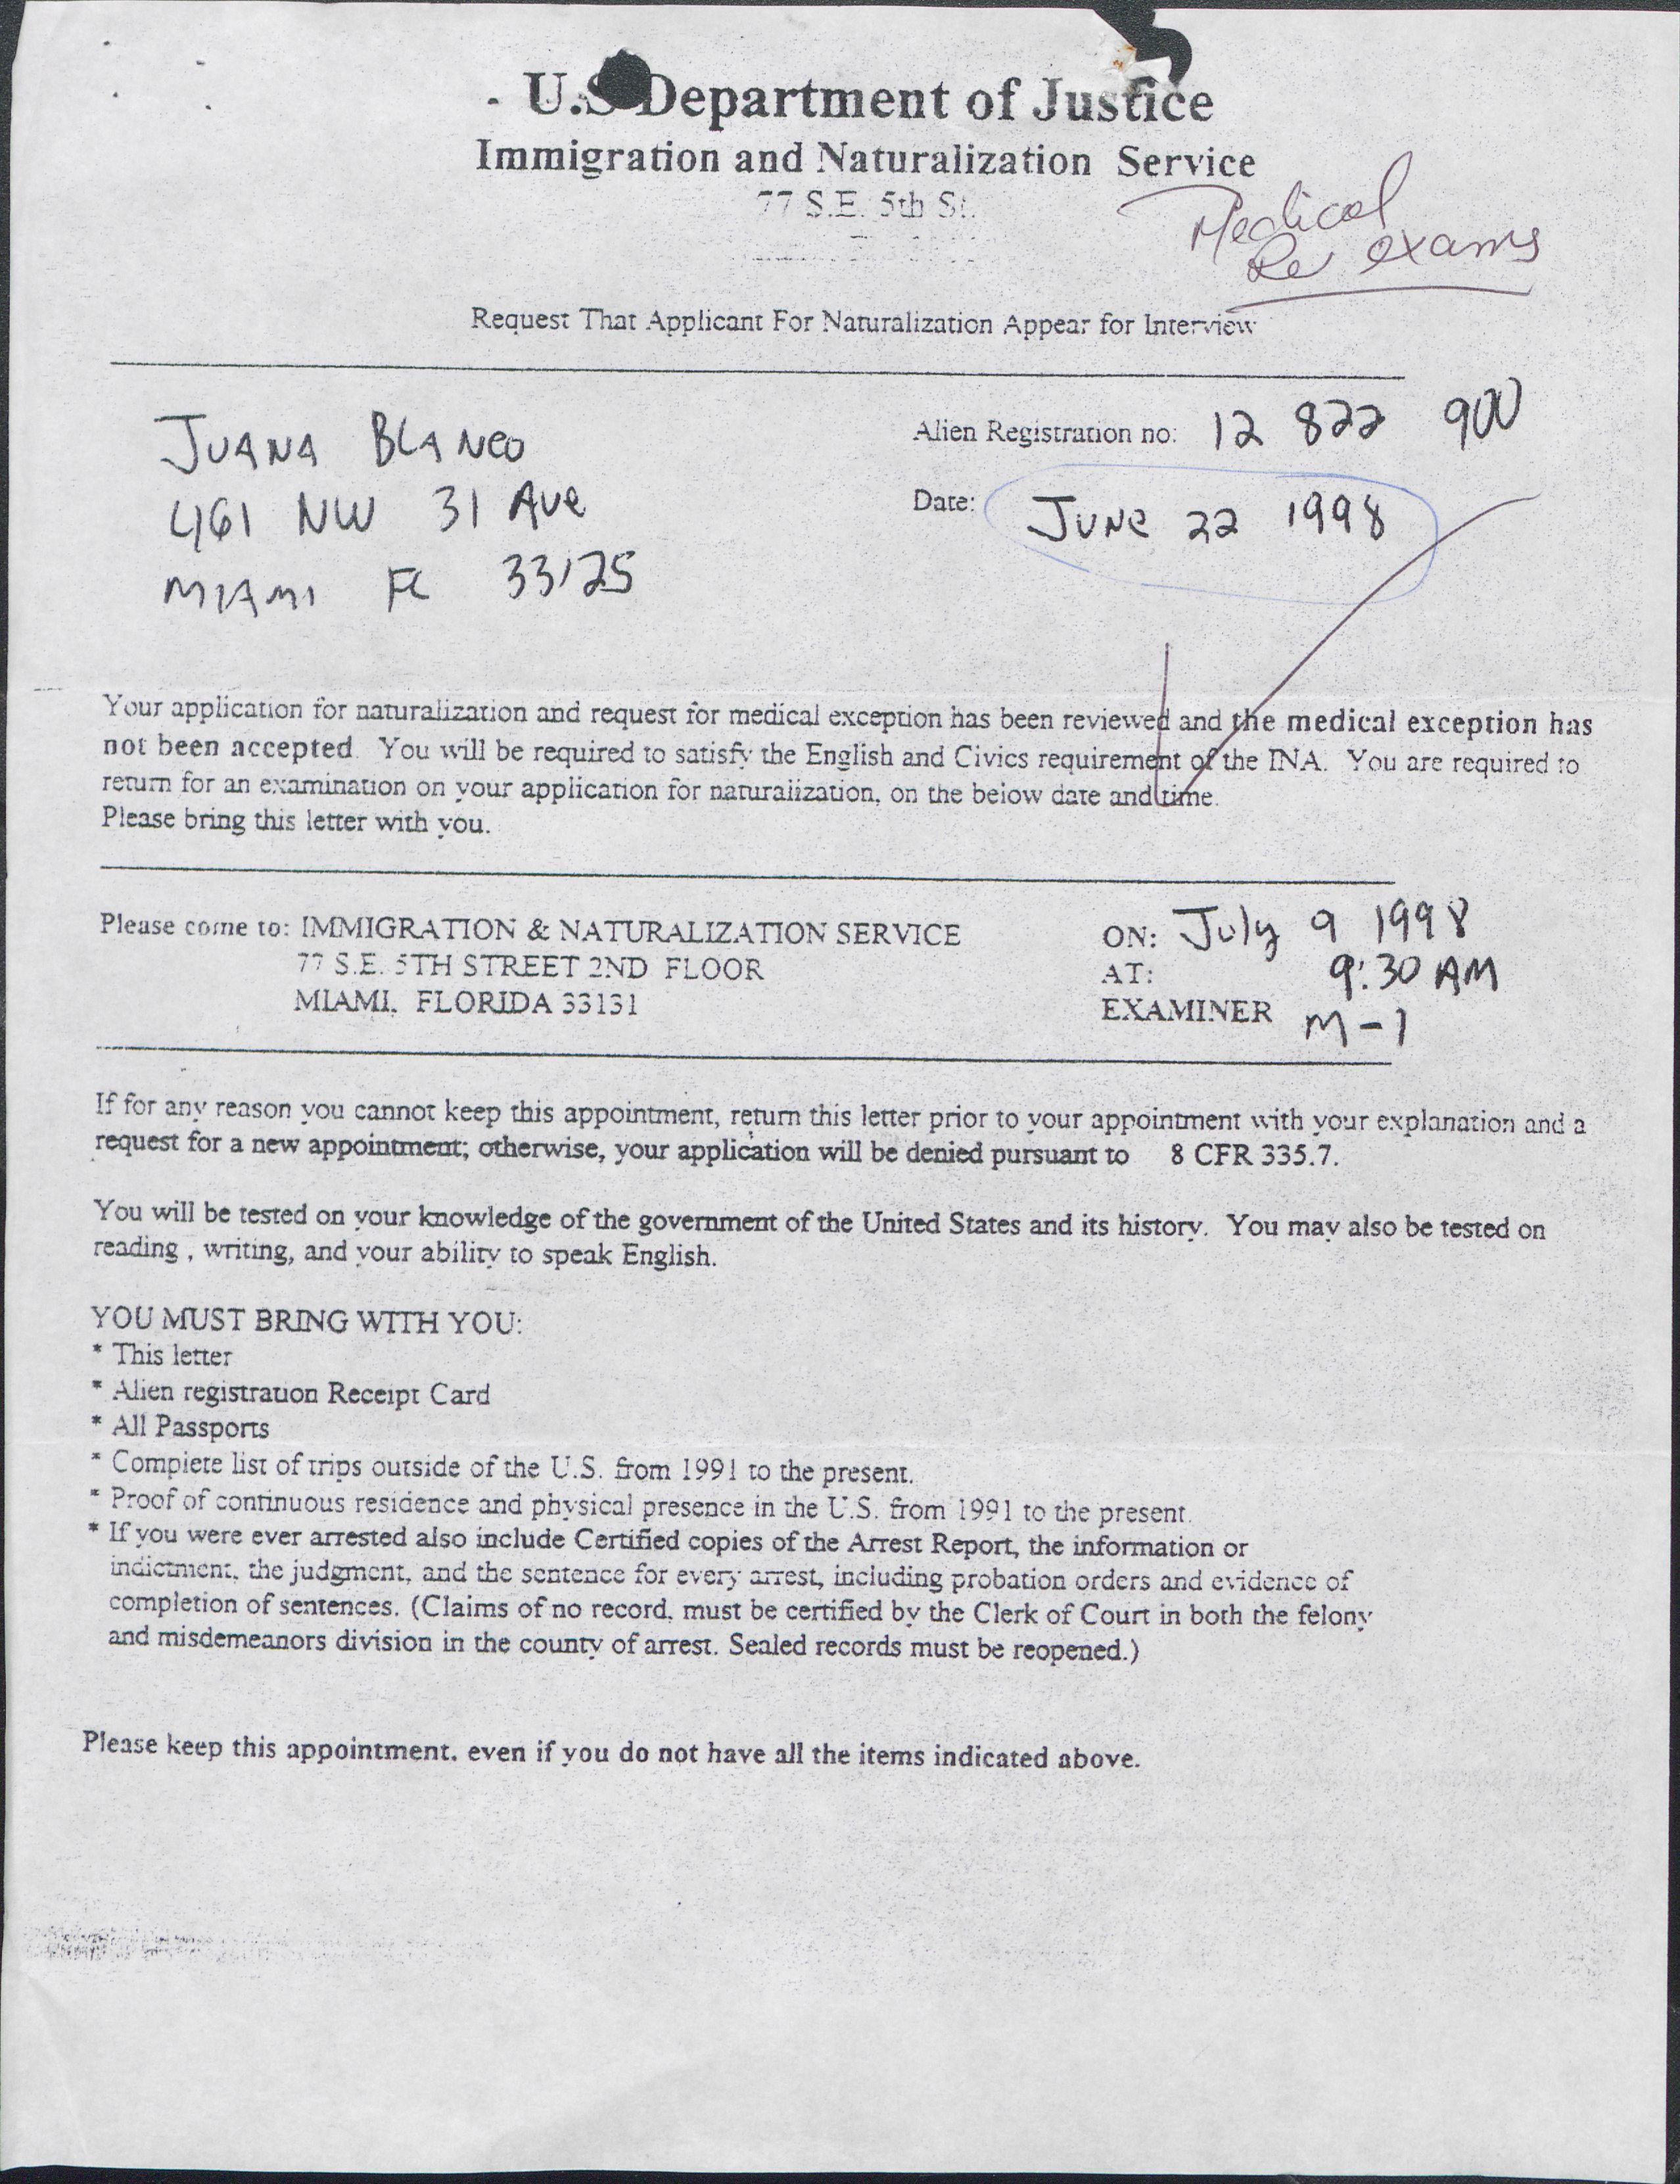 U.S Department of Justice
Immigration and Naturalization Service
77 S.E. 5th St.
Medical
Re exams
Request That Applicant For Naturalization Appear for Interview
JUANA BLANCO
461 NW 31 Ave
MIAMI FL 33125
Alien Registration no: 12 822 900
Date: JUNE 22 1998
Your application for naturalization and request for medical exception has been reviewed and the medical exception has
not been accepted. You will be required to satisfy the English and Civics requirement of the INA. You are required to
return for an examination on your application for naturalization, on the below date and time.
Please bring this letter with you.
Please come to: IMMIGRATION & NATURALIZATION SERVICE
77 S.E. 5TH STREET 2ND FLOOR
MIAMI, FLORIDA 33131
ON: July 9 1998
AT: 9:30 AM
EXAMINER M-1
If for any reason you cannot keep this appointment, return this letter prior to your appointment with your explanation and a
request for a new appointment; otherwise, your application will be denied pursuant to 8 CFR 335.7.
You will be tested on your knowledge of the government of the United States and its history. You may also be tested on
reading , writing, and your ability to speak English.
YOU MUST BRING WITH YOU:
* This letter
* Alien registration Receipt Card
* All Passports
* Complete list of trips outside of the U.S. from 1991 to the present.
* Proof of continuous residence and physical presence in the U.S. from 1991 to the present.
* If you were ever arrested also include Certified copies of the Arrest Report, the information or
indictment, the judgment, and the sentence for every arrest, including probation orders and evidence of
completion of sentences. (Claims of no record, must be certified by the Clerk of Court in both the felony
and misdemeanors division in the county of arrest. Sealed records must be reopened.)
Please keep this appointment, even if you do not have all the items indicated above.